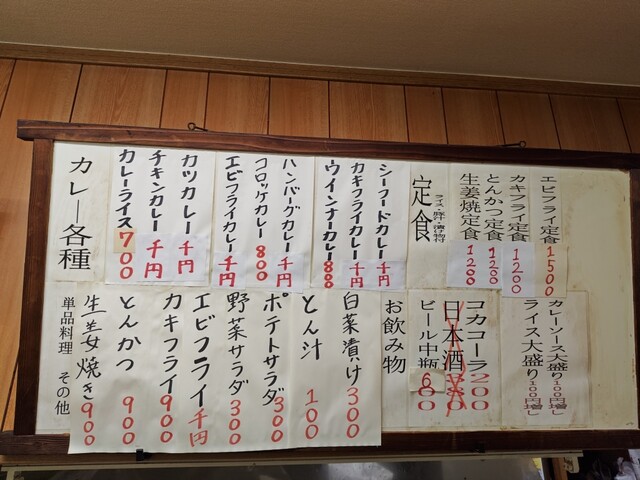 エビフライ定食 1500
カキフライ定食 1200
とんかつ定食 1200
生姜焼定食 1200
ライス・豚汁・漬け物付
定食
シーフードカレー 千円
カキフライカレー 千円
ウインナーカレー 800
ハンバーグカレー 千円
コロッケカレー 800
エビフライカレー 千円
カツカレー 千円
チキンカレー 千円
カレーライス 700
カレー各種
カレーソース大盛り100円増し
ライス大盛り100円増し
コカコーラ 200
日本酒
ビール中瓶 600
お飲み物
白菜漬け 300
とん汁 100
ポテトサラダ 300
野菜サラダ 300
エビフライ 千円
カキフライ 900
とんかつ 900
生姜焼き 900
単品料理 その他